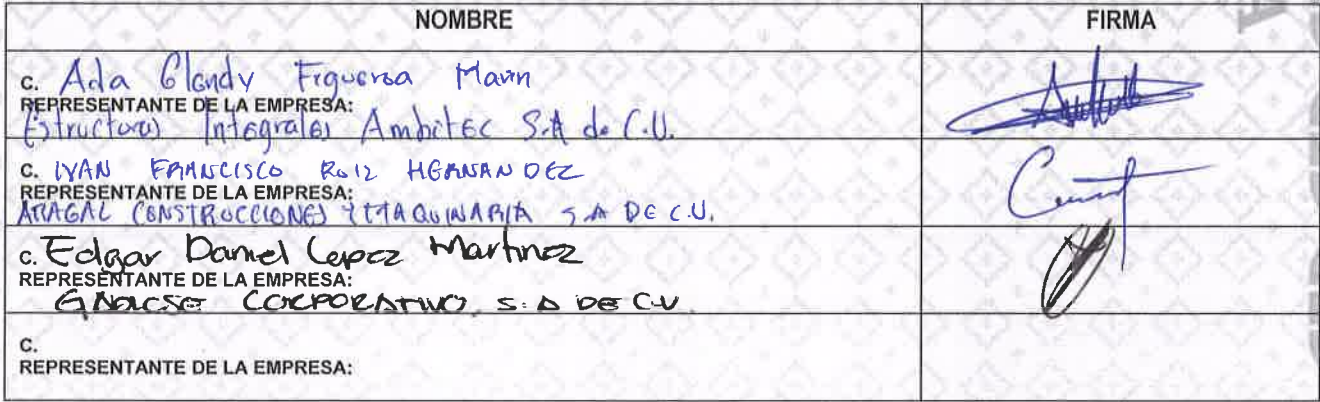 NOMBRE FIRMA
C. Ada Glendy Figueroa Marin
REPRESENTANTE DE LA EMPRESA:
Estructuras Integrales Ambitec S.A de C.V.
C. IVAN FRANCISCO RUIZ HERNANDEZ
REPRESENTANTE DE LA EMPRESA:
ARAGAL CONSTRUCCIONES Y MAQUINARIA S A DE C.V.
C. Edgar Daniel Lopez Martinez
REPRESENTANTE DE LA EMPRESA:
CORPORATIVO, S. A DE C.V
C.
REPRESENTANTE DE LA EMPRESA: